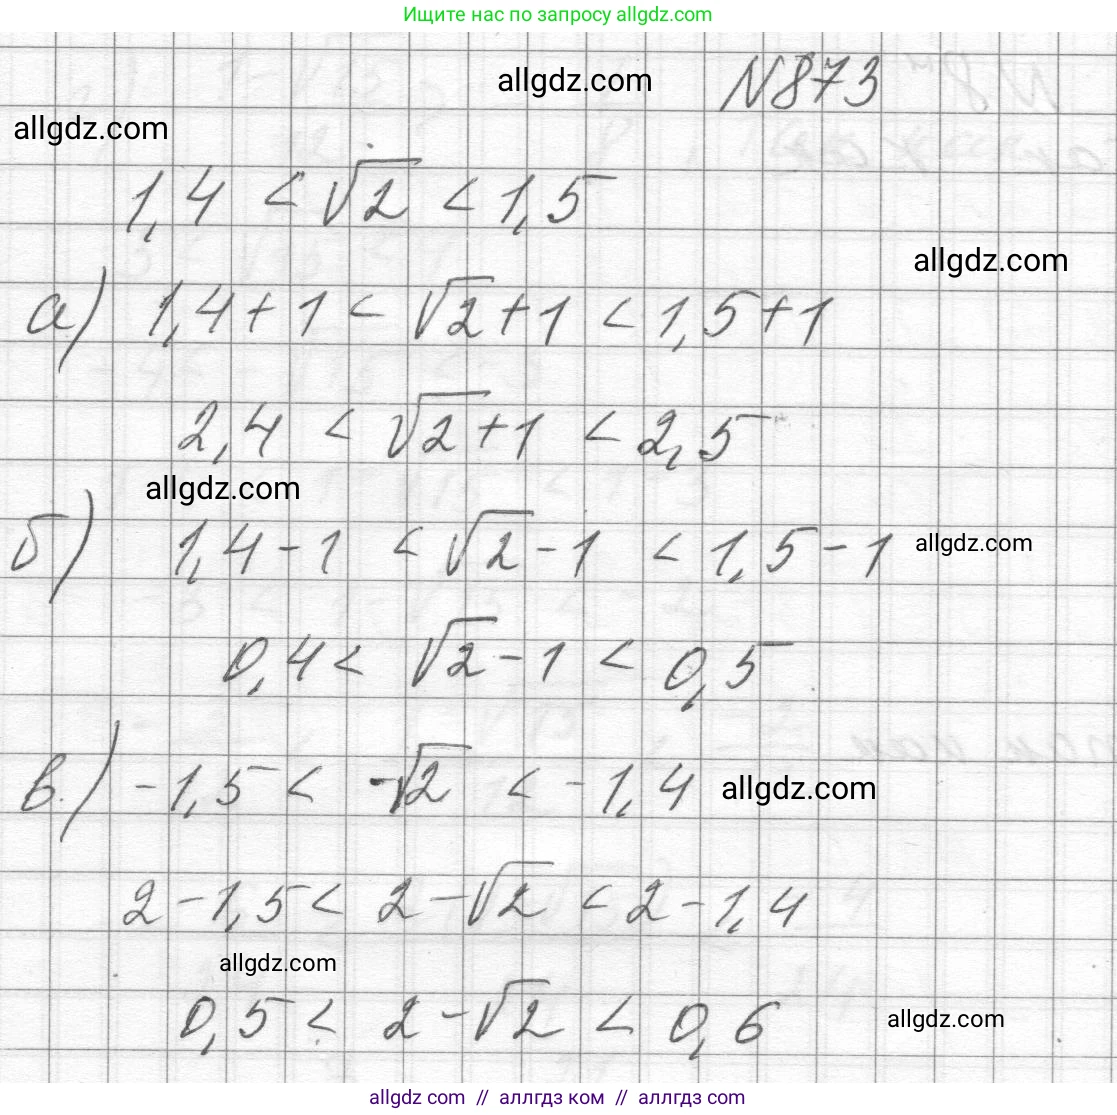 Ищите нас по запросу allgdz.com
allgdz.com
N873
allgdz.com
1,4 < √2 < 1,5
allgdz.com
а) 1,4 + 1 < √2 + 1 < 1,5 + 1
2,4 < √2 + 1 < 2,5
allgdz.com
б) 1,4 - 1 < √2 - 1 < 1,5 - 1
allgdz.com
0,4 < √2 - 1 < 0,5
в) -1,5 < -√2 < -1,4
allgdz.com
2 - 1,5 < 2 - √2 < 2 - 1,4
allgdz.com
0,5 < 2 - √2 < 0,6
allgdz.com
allgdz com // аллгдз ком // аллгдз com